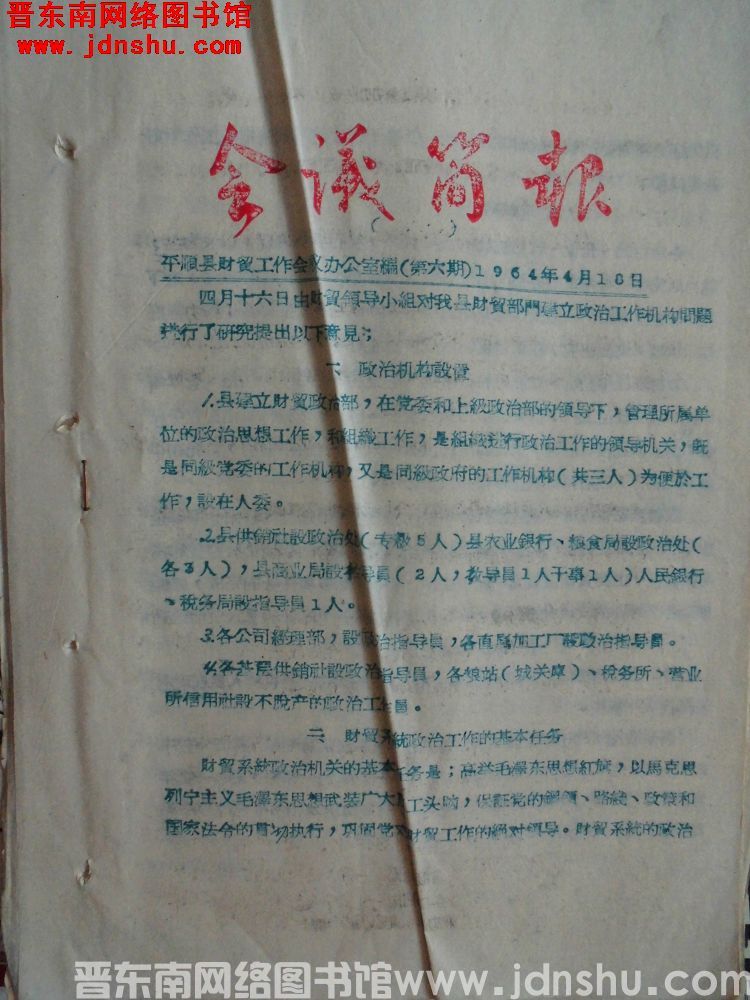 晋东南网络图书馆
www.jdnshu.com
会议简报
( )
平順县財貿工作会议办公室編(第六期)1964年4月18日
四月十六日由財貿領导小組对我县財貿部門建立政治工作机构問題
进行了研究提出以下意見;
一、政治机构設置
1.县建立財貿政治部,在党委和上級政治部的領导下,管理所属单
位的政治思想工作,和組織工作,是組織进行政治工作的領导机关,既
是同級党委的工作机构,又是同級政府的工作机构(共三人)为便於工
作,設在人委。
2.县供銷社設政治处(专搬5人)县农业銀行、粮食局設政治处(
各3人),县商业局設教导員(2人,教导員1人干事1人)人民銀行
、稅务局設指导員1人。
3.各公司經理部,設政治指导員,各直属加工厂設政治指导員。
4.各基层供銷社設政治指导員,各粮站(城关庫)、稅务所、营业
所信用社設不脫产的政治工作員。
二、財貿系統政治工作的基本任务
財貿系統政治机关的基本任务是;高举毛澤东思想紅旗,以馬克思
列宁主义毛澤东思想武装广大职工头脑,保証党的綱領、路綫、政策和
国家法令的貫切执行,巩固党对財貿工作的絕对領导。財貿系統的政治
晋东南网络图书馆www.jdnshu.com